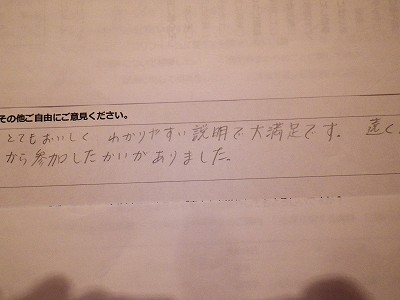 その他ご自由にご意見ください。
とてもおいしく わかりやすい説明で大満足です。 遠く
から参加したかいがありました。